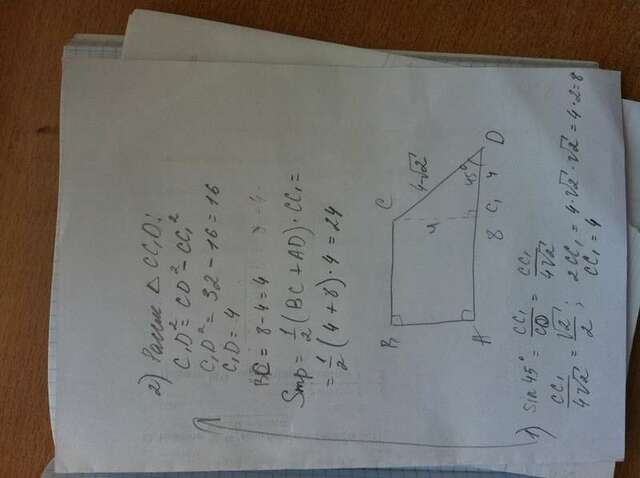 2) Рассм △ CC₁D:
C₁D² = CD² - CC₁²
C₁D² = 32 - 16 = 16
C₁D = 4
BC = 8 - 4 = 4
Sтр = 1/2 (BC + AD) · CC₁ =
= 1/2 (4 + 8) · 4 = 24
B C
4√2
4
45°
A 8 C₁ 4 D
1) sin 45° = CC₁/CD = CC₁/4√2
CC₁/4√2 = √2/2 ; 2CC₁ = 4·√2·√2 = 4·2 = 8
CC₁ = 4